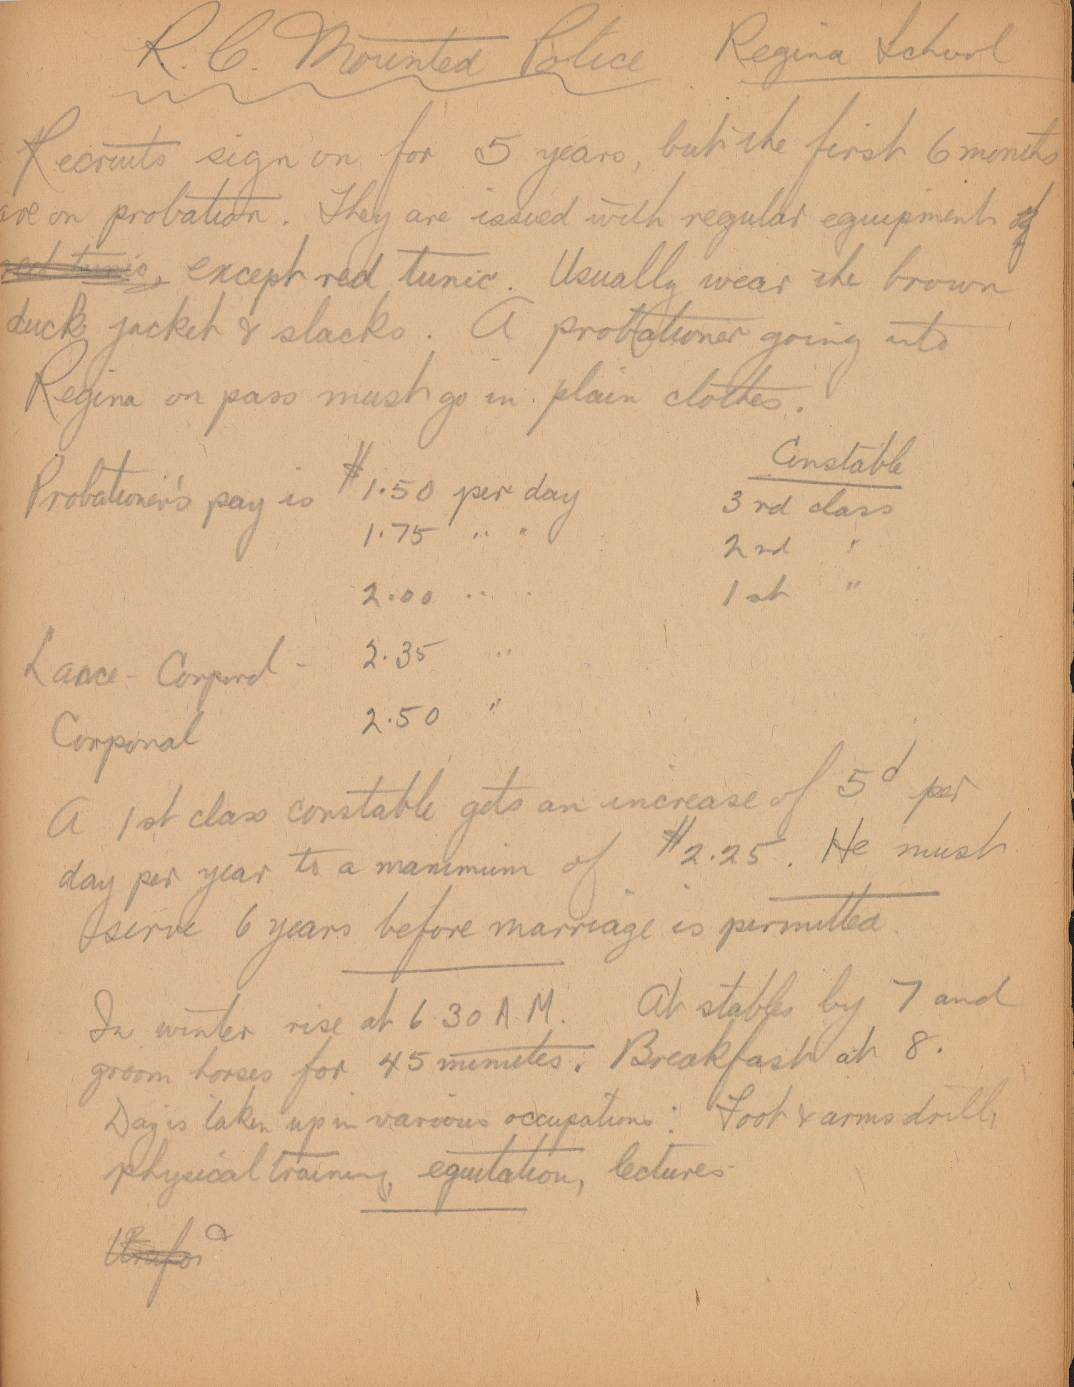 R. C. Mounted Police Regina School
Recruits sign on for 5 years, but the first 6 months
are on probation. They are issued with regular equipment
red tunic, except red tunic. Usually wear the brown
duck jacket & slacks. A probationer going into
Regina on pass must go in plain clothes.
Constable
Probationer's pay is $1.50 per day 3rd class
1.75 " " 2nd "
2.00 " " 1st "
Lance-Corporal - 2.35 "
Corporal 2.50 "
A 1st class constable gets an increase of 5d per
day per year to a maximum of $2.25. He must
serve 6 years before marriage is permitted.
In winter rise at 6.30 A.M. At stables by 7 and
groom horses for 45 minutes. Breakfast at 8.
Day is taken up in various occupations: Foot & arms drill,
physical training, equitation, lectures